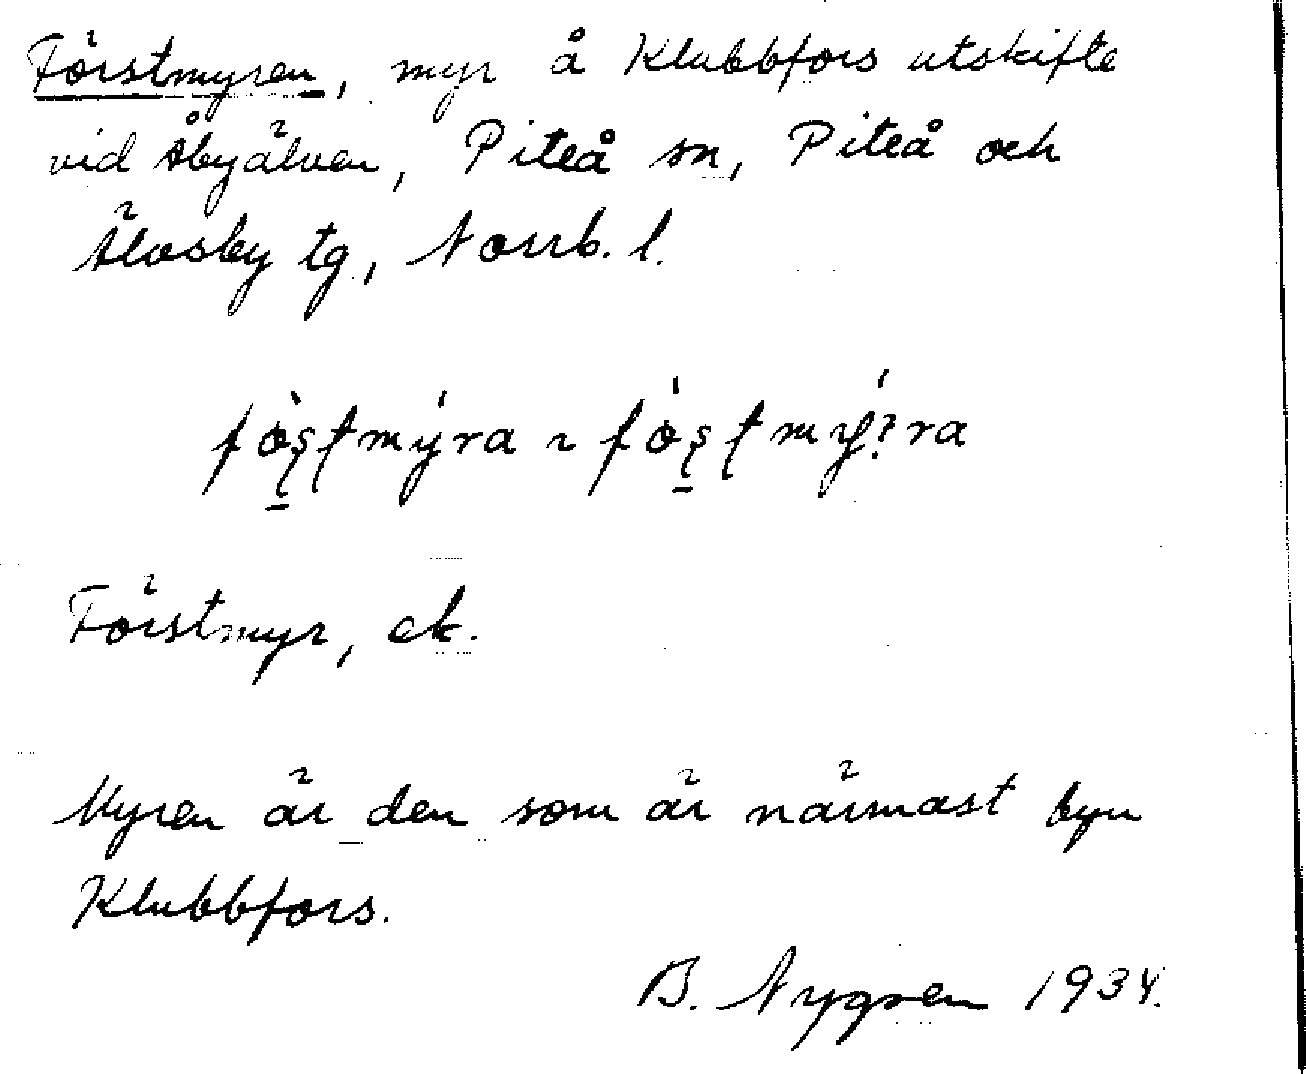 Förstmyren, myr å Klubbfors utskifte
vid Åbyälven, Piteå sn, Piteå och
Älvsby tg, Norrb. l.
Förstmyr, ek.
Myren är den som är närmast byn
Klubbfors.
B. Nygren 1934.